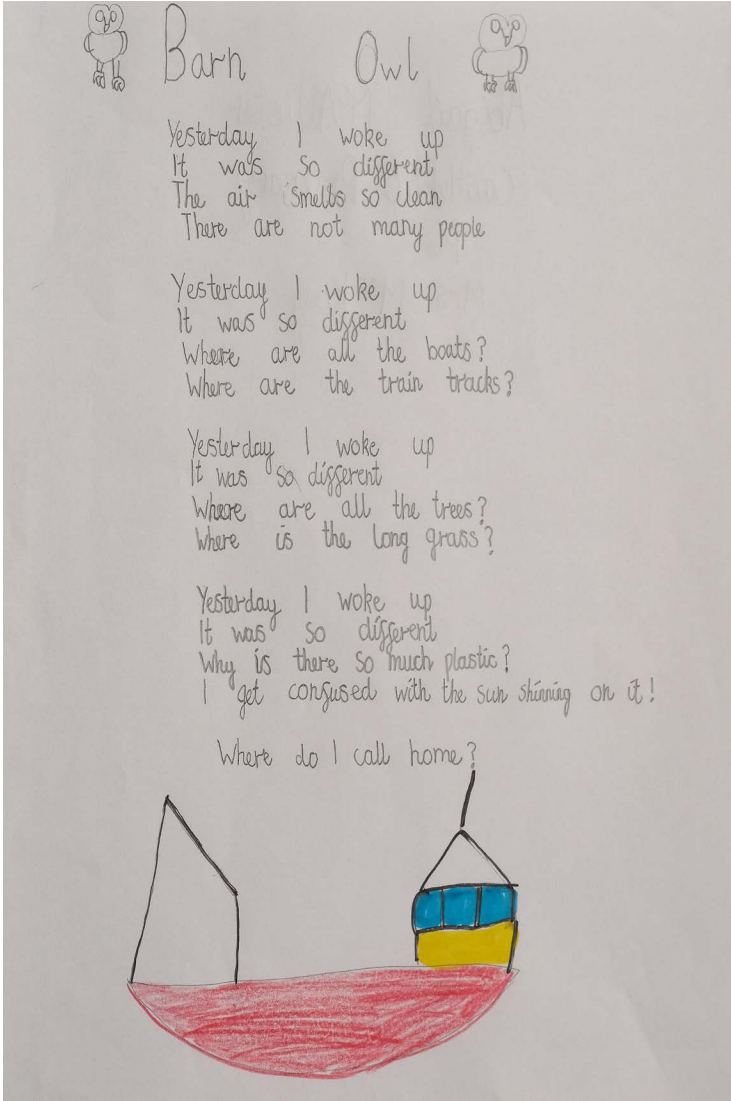 Barn Owl
Yesterday I woke up
It was so different
The air smells so clean
There are not many people
Yesterday I woke up
It was so different
Where are all the boats?
Where are the train tracks?
Yesterday I woke up
It was so different
Where are all the trees?
Where is the long grass?
Yesterday I woke up
It was so different
Why is there so much plastic?
I get confused with the sun shinning on it!
Where do I call home?